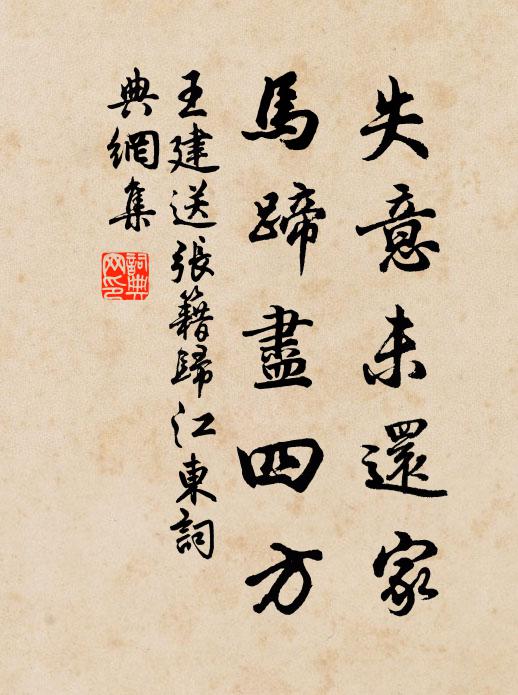 失意未還家
馬蹄盡四方
王建送張籍歸江東詞
典網集
詞典網印